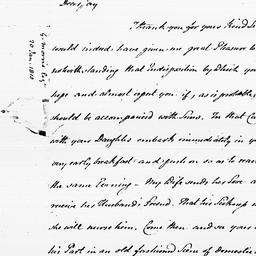 Dear Jay
Thank you for your kind
would indeed, have given me great Pleasure to
notwithstanding that Indisposition by which you
hope and almost expect you if, as is probable,
should be accompanied with Sums. In that Ca
with your Daughter embark immediately in you
very early breakfast and push on so as to reach
the same Evening — My Wife sends her Love a
receive her Husband's Friend. That his Sickness
she will nurse him. Come then and see your
his Part in an old fashioned Scene of domestic
G Morris Esqr
20 Jan. 1810